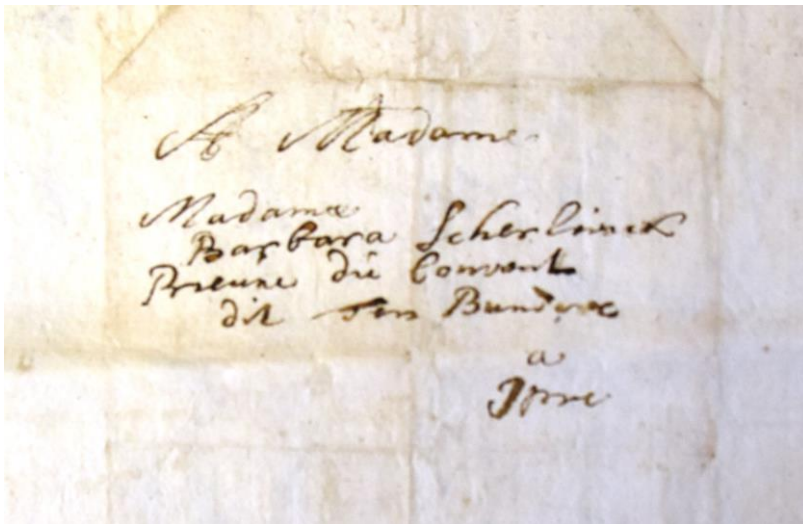 A Madame
Madame
Barbara Scherlinck
Prieure die Convent
dit ten Bundere
a
Ipre